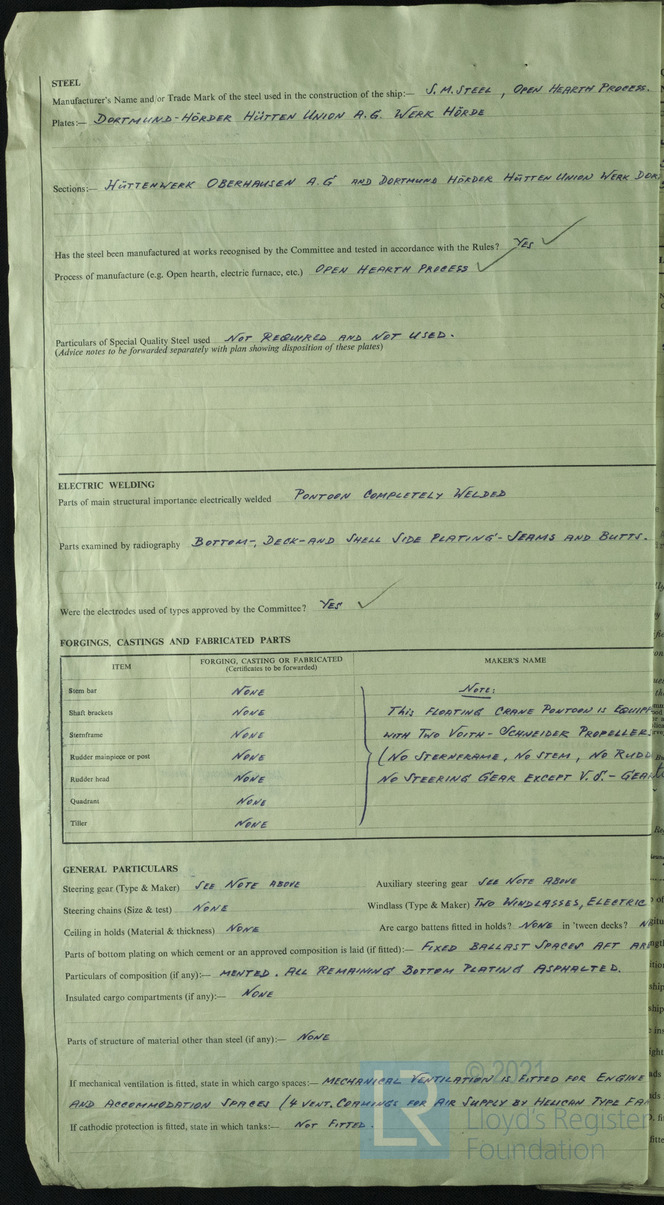 STEEL
Manufacturer's Name and/or Trade Mark of the steel used in the construction of the ship:— S.M. STEEL, OPEN HEARTH PROCESS.
Plates:— DORTMUND-HÖRDER HÜTTEN UNION A.G. WERK HÖRDE
Sections:— HÜTTENWERK OBERHAUSEN A.G AND DORTMUND HÖRDER HÜTTEN UNION WERK DOR
Has the steel been manufactured at works recognised by the Committee and tested in accordance with the Rules? YES ✓
Process of manufacture (e.g. Open hearth, electric furnace, etc.) OPEN HEARTH PROCESS ✓
Particulars of Special Quality Steel used NOT REQUIRED AND NOT USED.
(Advice notes to be forwarded separately with plan showing disposition of these plates)
ELECTRIC WELDING
Parts of main structural importance electrically welded PONTOON COMPLETELY WELDED
Parts examined by radiography BOTTOM-, DECK- AND SHELL SIDE PLATING - SEAMS AND BUTTS.
Were the electrodes used of types approved by the Committee? YES ✓
FORGINGS, CASTINGS AND FABRICATED PARTS
ITEM FORGING, CASTING OR FABRICATED MAKER'S NAME
(Certificates to be forwarded)
Stem bar NONE NOTE:
Shaft brackets NONE THIS FLOATING CRANE PONTOON IS EQUIP
Sternframe NONE WITH TWO VOITH - SCHNEIDER PROPELLER.
Rudder mainpiece or post NONE (NO STERNFRAME, NO STEM, NO RUDD
Rudder head NONE NO STEERING GEAR EXCEPT V.S. - GEAR
Quadrant NONE
Tiller NONE
GENERAL PARTICULARS
Steering gear (Type & Maker) SEE NOTE ABOVE Auxiliary steering gear SEE NOTE ABOVE
Steering chains (Size & test) NONE Windlass (Type & Maker) TWO WINDLASSES, ELECTRIC
Ceiling in holds (Material & thickness) NONE Are cargo battens fitted in holds? NONE in 'tween decks?
Parts of bottom plating on which cement or an approved composition is laid (if fitted):— FIXED BALLAST SPACES AFT ARE
Particulars of composition (if any):— MENTED. ALL REMAINING BOTTOM PLATING ASPHALTED.
Insulated cargo compartments (if any):— NONE
Parts of structure of material other than steel (if any):— NONE
If mechanical ventilation is fitted, state in which cargo spaces:— MECHANICAL VENTILATION IS FITTED FOR ENGINE
AND ACCOMMODATION SPACES (4 VENT. COAMINGS FOR AIR SUPPLY BY HELICAN TYPE FA
If cathodic protection is fitted, state in which tanks:— NOT FITTED.
© 2021
LR
Lloyd's Register
Foundation